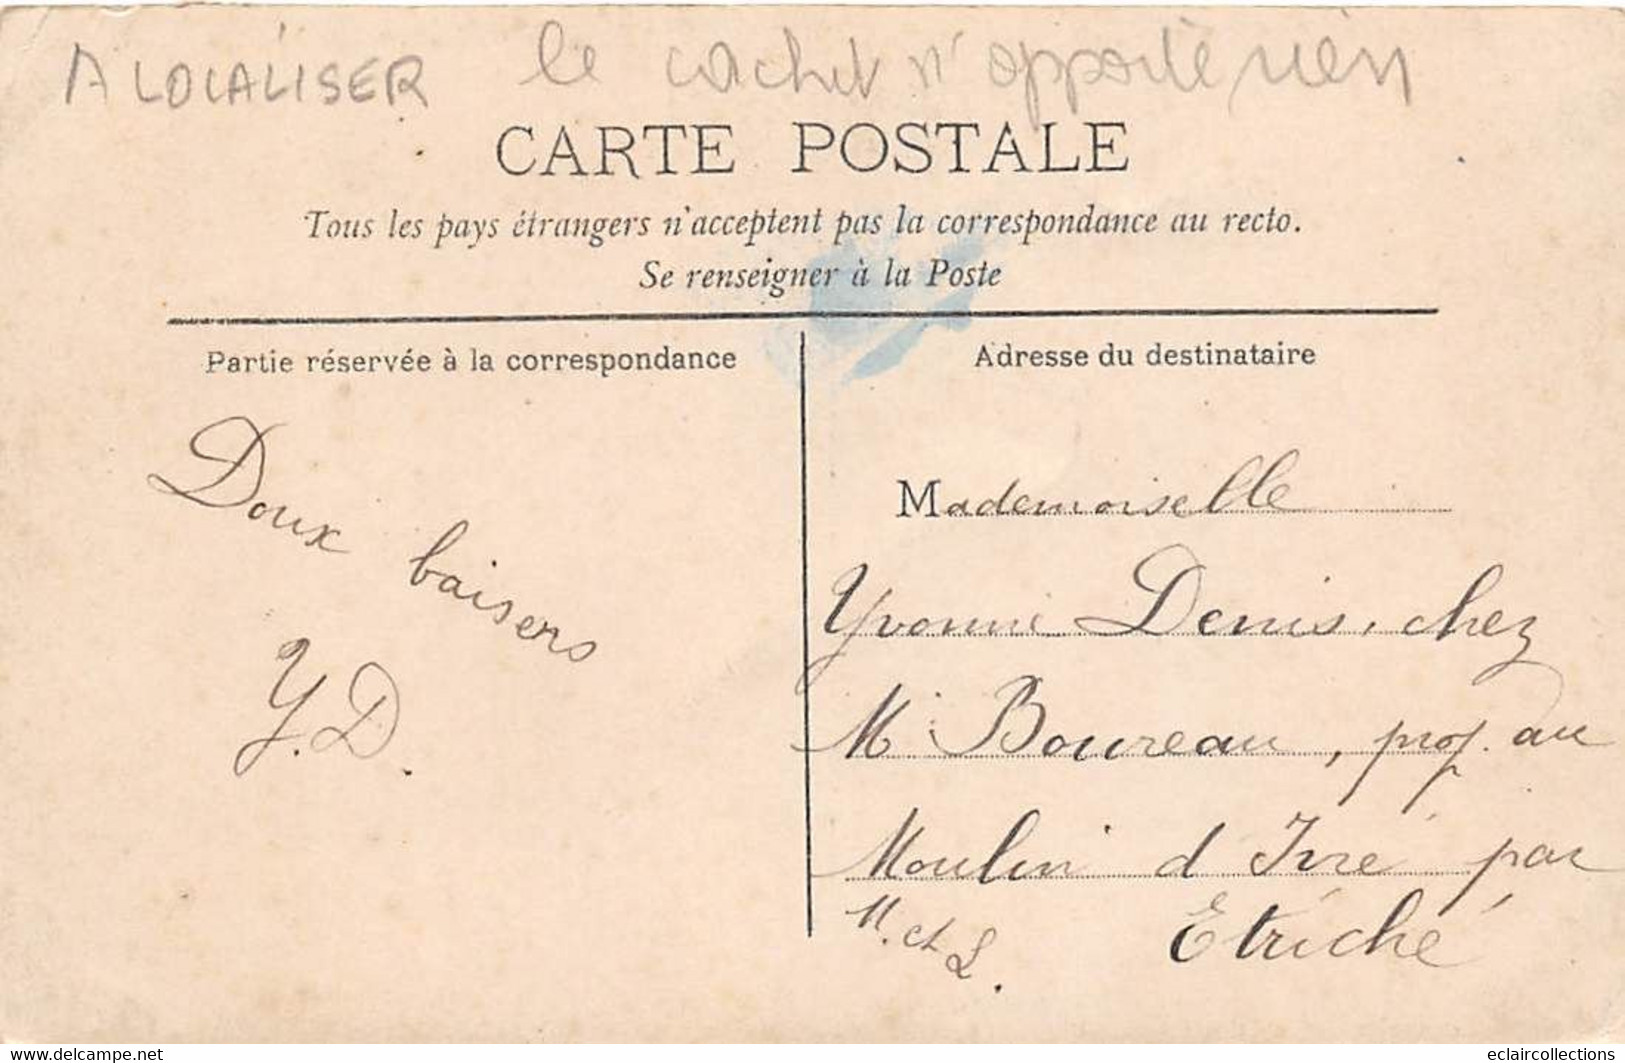 A LOCALISER le cachet n'apporte rien
CARTE POSTALE
Tous les pays étrangers n'acceptent pas la correspondance au recto.
Se renseigner à la Poste
Partie réservée à la correspondance
Doux baisers
Y.D.
Adresse du destinataire
Mademoiselle
Yvonne Denis, chez
M. Boureau, prop. au
Moulin d Ivré par
Etriché
M. et L.
www.delcampe.net
eclaircollections